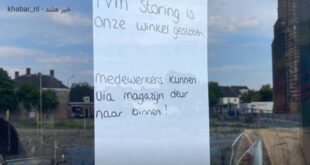 khabar_nl - خبر هلند
Ivm Storing is
Onze winkel gesloten
medewerkers kunnen
Via magazijn deur
naar binnen!